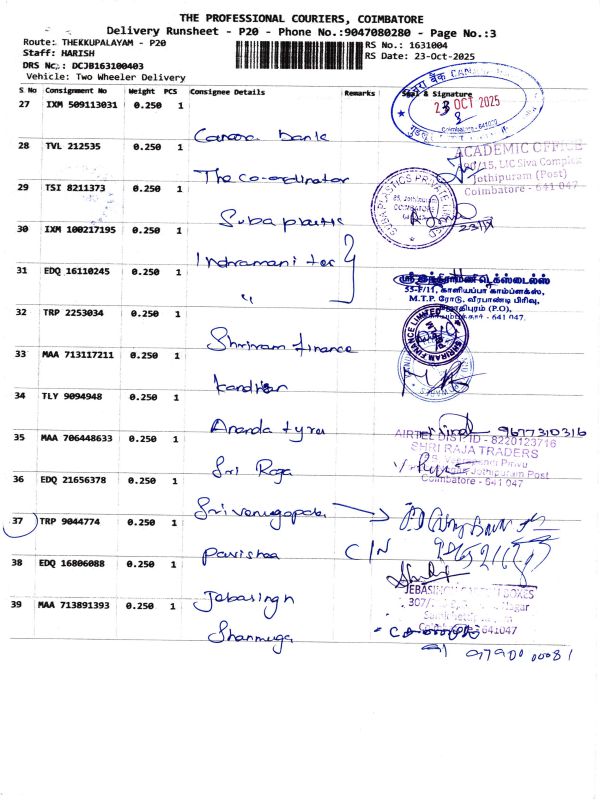 THE PROFESSIONAL COURIERS, COIMBATORE
Delivery Runsheet - P20 - Phone No.:9047080280 - Page No.:3
Route: THEKKUPALAYAM - P20
Staff: HARISH
DRS No.: DCJB163100403
Vehicle: Two Wheeler Delivery
RS No.: 1631004
RS Date: 23-Oct-2025
S No Consignment No Weight PCS Consignee Details Remarks Seal & Signature
27 IXM 509113031 0.250 1
Canara bank
23 OCT 2025
Coimbatore - 641
28 TVL 212535 0.250 1
The co-ordinator
ACADEMIC OFFICE
LIC Siva Complex
Jothipuram (Post)
Coimbatore - 641 047
29 TSI 8211373 0.250 1
Suba plastic
SUBA PLASTICS PRIVATE LIMITED
COIMBATORE
30 IXM 100217195 0.250 1
Indramani tex
31 EDQ 16110245 0.250 1
"
ஸ்ரீ இந்திராமணி டெக்ஸ்டைல்ஸ்
55-F/11, காளியப்பா காம்ப்ளக்ஸ்,
M.T.P. ரோடு, வீரபாண்டி பிரிவு,
ஜோதிபுரம் (P.O),
641 047.
32 TRP 2253034 0.250 1
Shriram finance
SHRIRAM FINANCE LIMITED
33 MAA 713117211 0.250 1
34 TLY 9094948 0.250 1
Ananda tyre
9677310316
35 MAA 706448633 0.250 1
Sri Raja
AIRTEL DIST. ID - 8220123716
SHRI RAJA TRADERS
Jothipuram Post
Coimbatore - 641 047
36 EDQ 21656378 0.250 1
Sri venugopal
37 TRP 9044774 0.250 1
Pavishaa
C/N
38 EDQ 16806088 0.250 1
Jebasingh
JEBASINGH
BOXES
307/
Nagar
641047
39 MAA 713891393 0.250 1
Shanmuga
9790000081